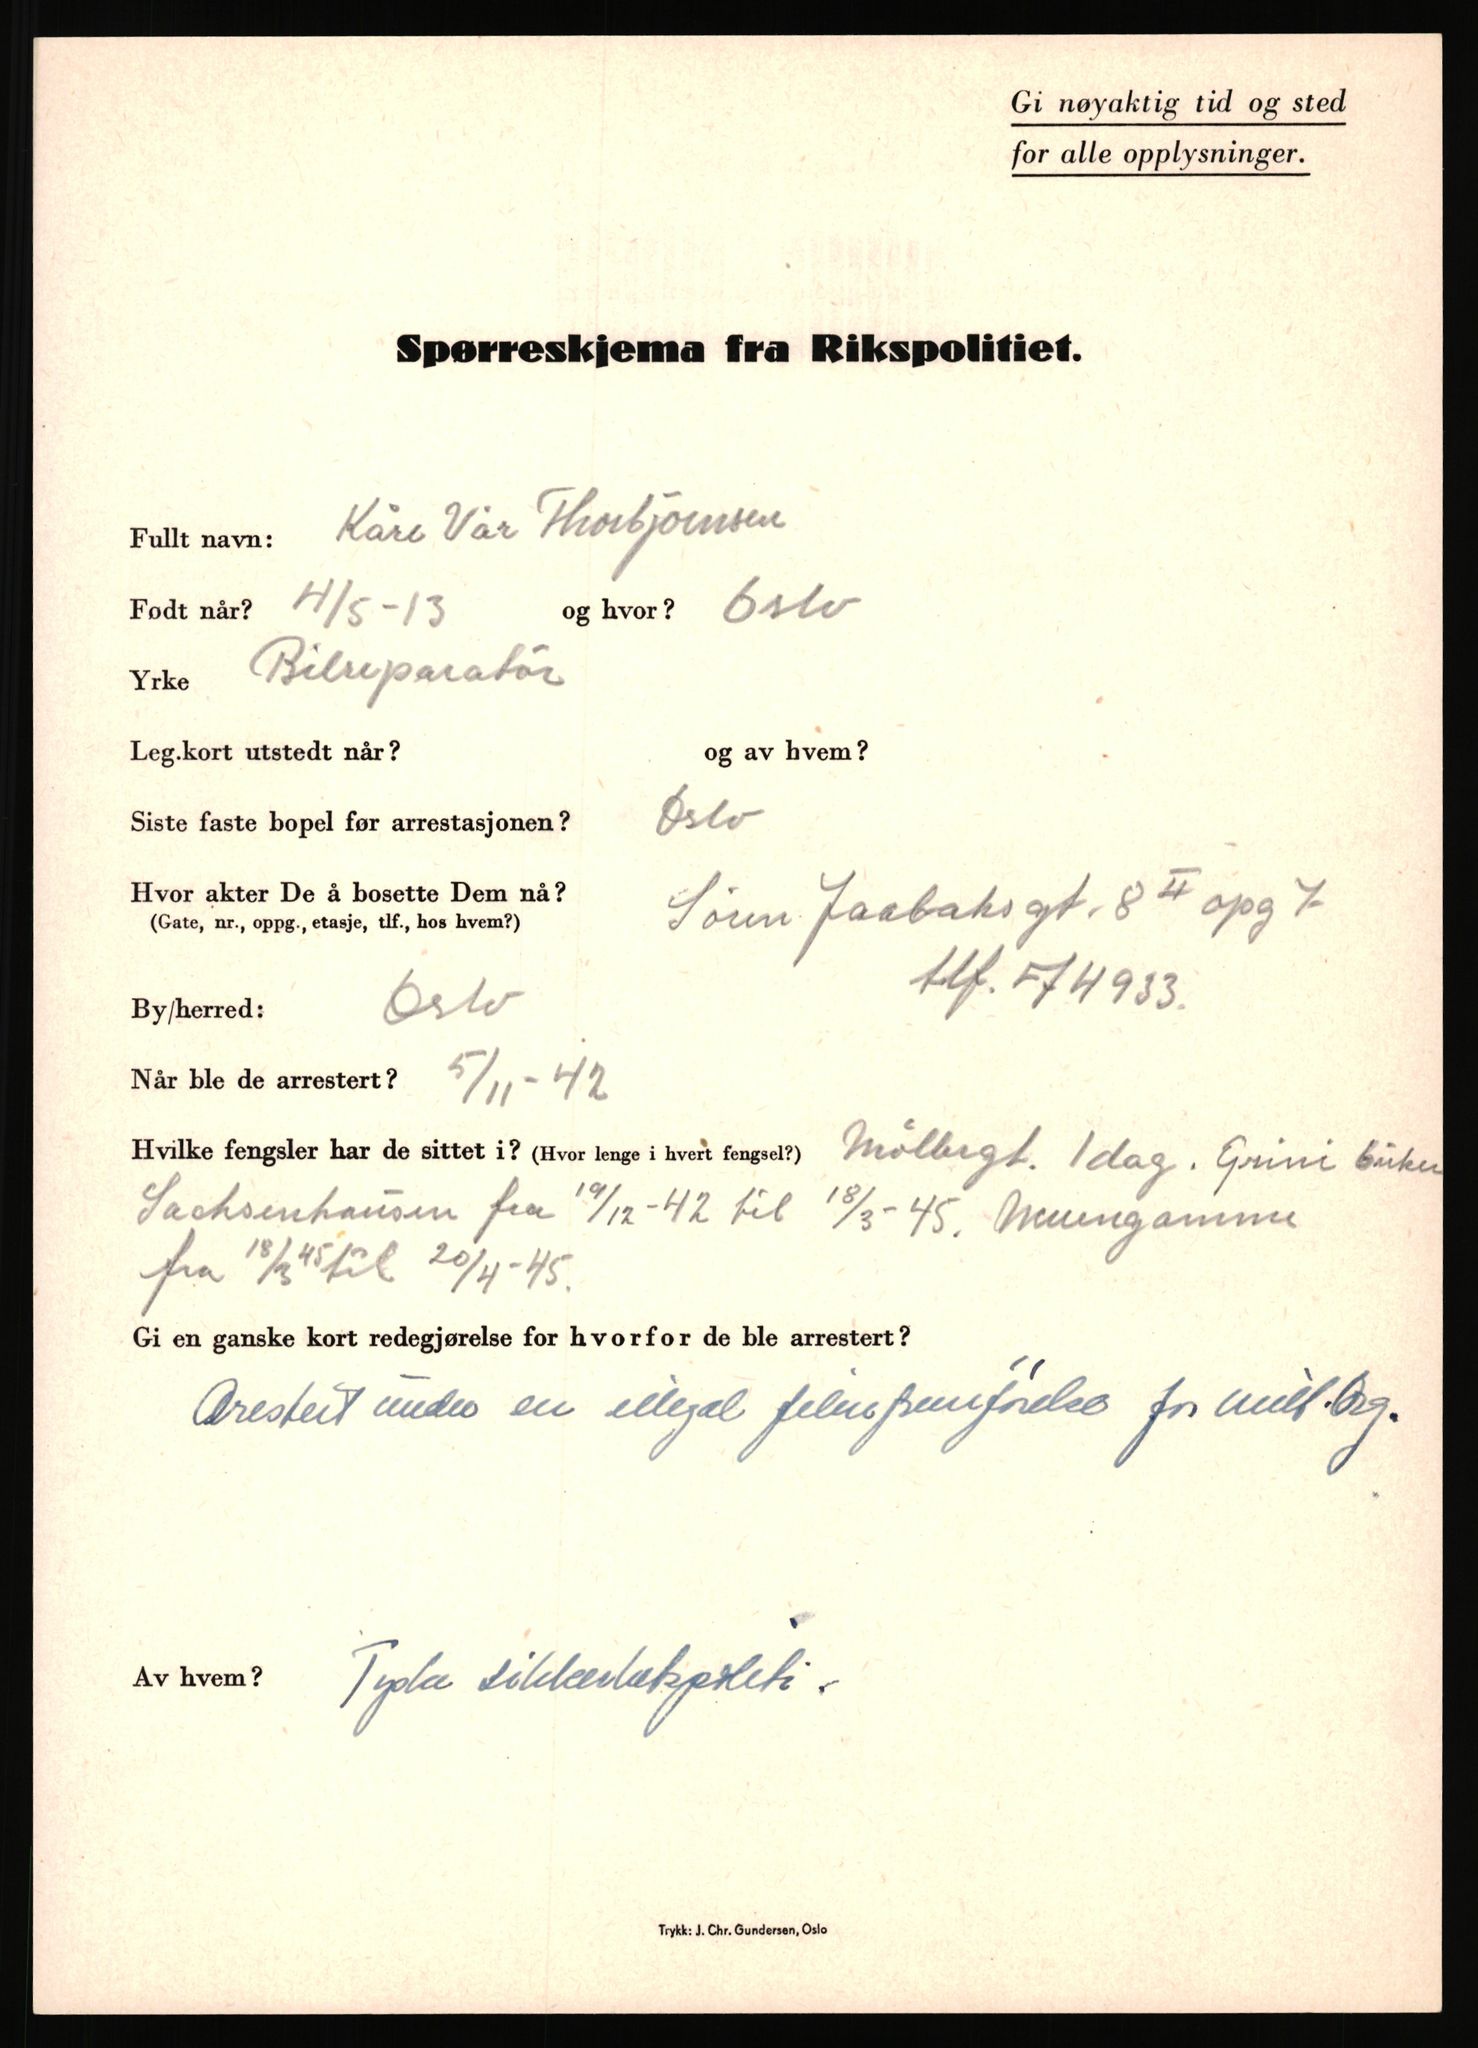 Gi nøyaktig tid og sted
for alle opplysninger.
Spørreskjema fra Rikspolitiet.
Fullt navn: Kåre Vår Thorbjörnsen
Født når? 4/5-13 og hvor? Oslo
Yrke Bilreparatör
Leg.kort utstedt når? og av hvem?
Siste faste bopel før arrestasjonen? Oslo
Hvor akter De å bosette Dem nå? Sören Jaabaks gt. 8 II opg 7
(Gate, nr., oppg., etasje, tlf., hos hvem?)
tlf. 74933.
By/herred: Oslo
Når ble de arrestert? 5/11-42
Hvilke fengsler har de sittet i? (Hvor lenge i hvert fengsel?) Möllergt. 1 dag. Grini 6 uker
Sachsenhausen fra 19/12-42 til 18/3-45. Neuengamme
fra 18/3 45 til 20/4-45.
Gi en ganske kort redegjørelse for hvorfor de ble arrestert?
Arestert under en illegal filmfremförelse for Mil. Org.
Av hvem? Tyske sikkerhetspoliti.
Trykk: J. Chr. Gundersen, Oslo